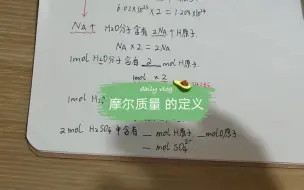 6.02×10²³ × 2 = 1.204×10²⁴
NA个 H2O分子含有 2NA个H原子
NA × 2 = 2NA
1mol H2O分子含有 2 mol H原子
1mol × 2
daily vlog
摩尔质量 的定义
1mol H2
2 mol H2SO4中含有 mol H原子 mol O原子
mol SO4²⁻